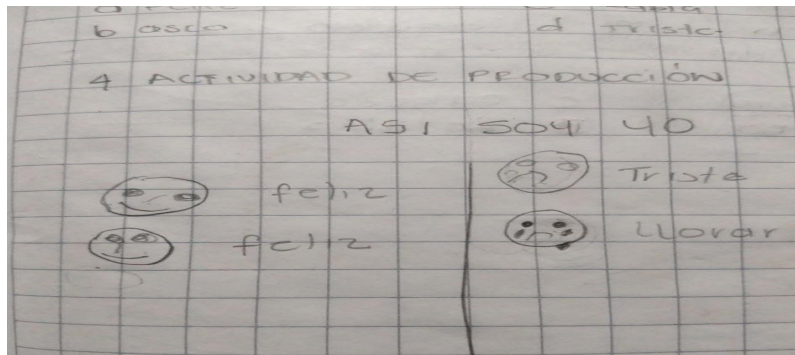 b asco
d Triste
4 ACTIVIDAD DE PRODUCCIÓN
ASI SOY YO
feliz
Triste
feliz
LLorar